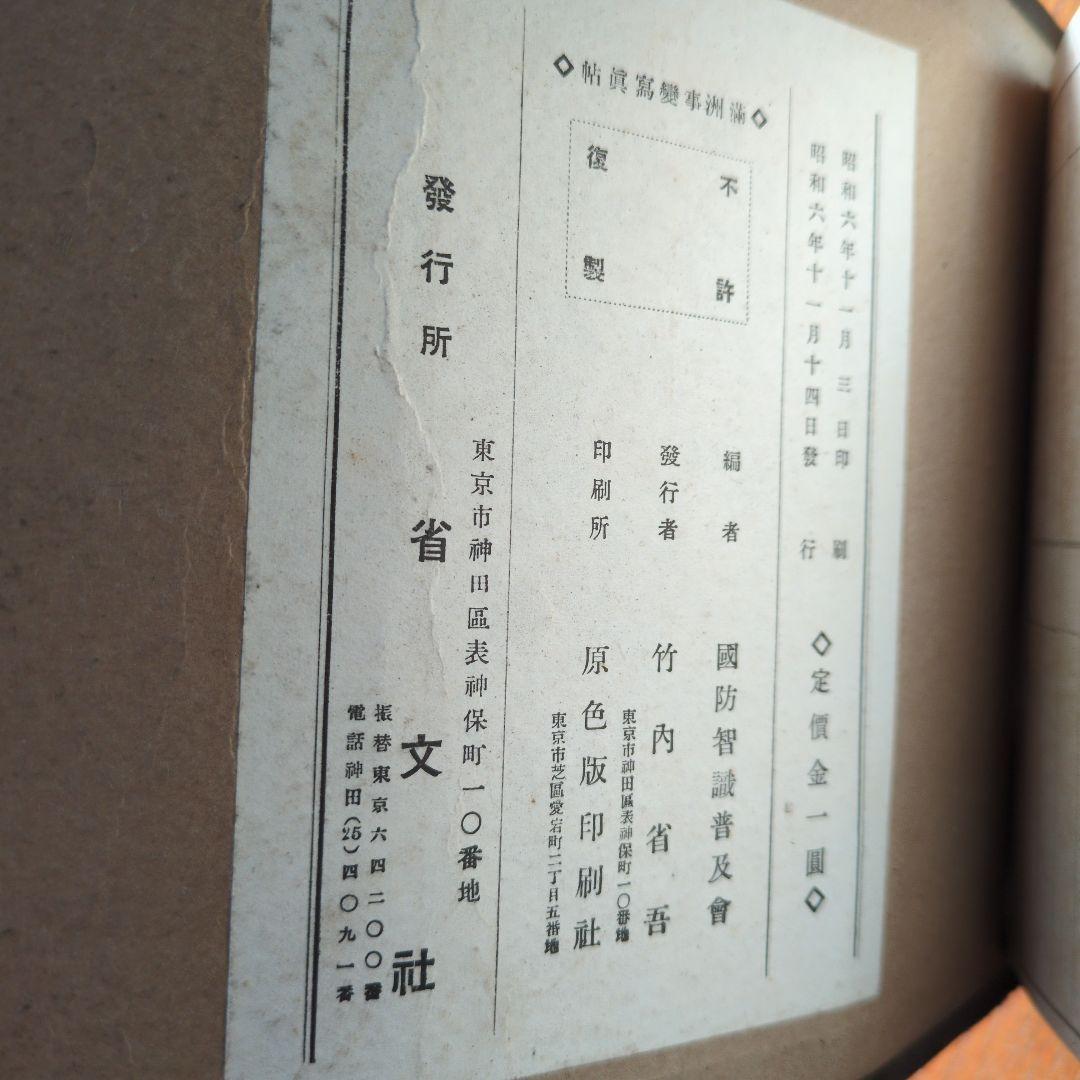 昭和六年十一月三日印刷
昭和六年十一月十四日發行
◇定價金一圓◇
◇滿洲事變寫眞帖◇
不許
復製
編者 國防智識普及會
發行者 竹內省吾
東京市神田區表神保町一〇番地
印刷所 原色版印刷社
東京市芝區愛宕町二丁目五番地
東京市神田區表神保町一〇番地
發行所 省文社
振替東京六四二〇〇番
電話神田(25)四〇九一番